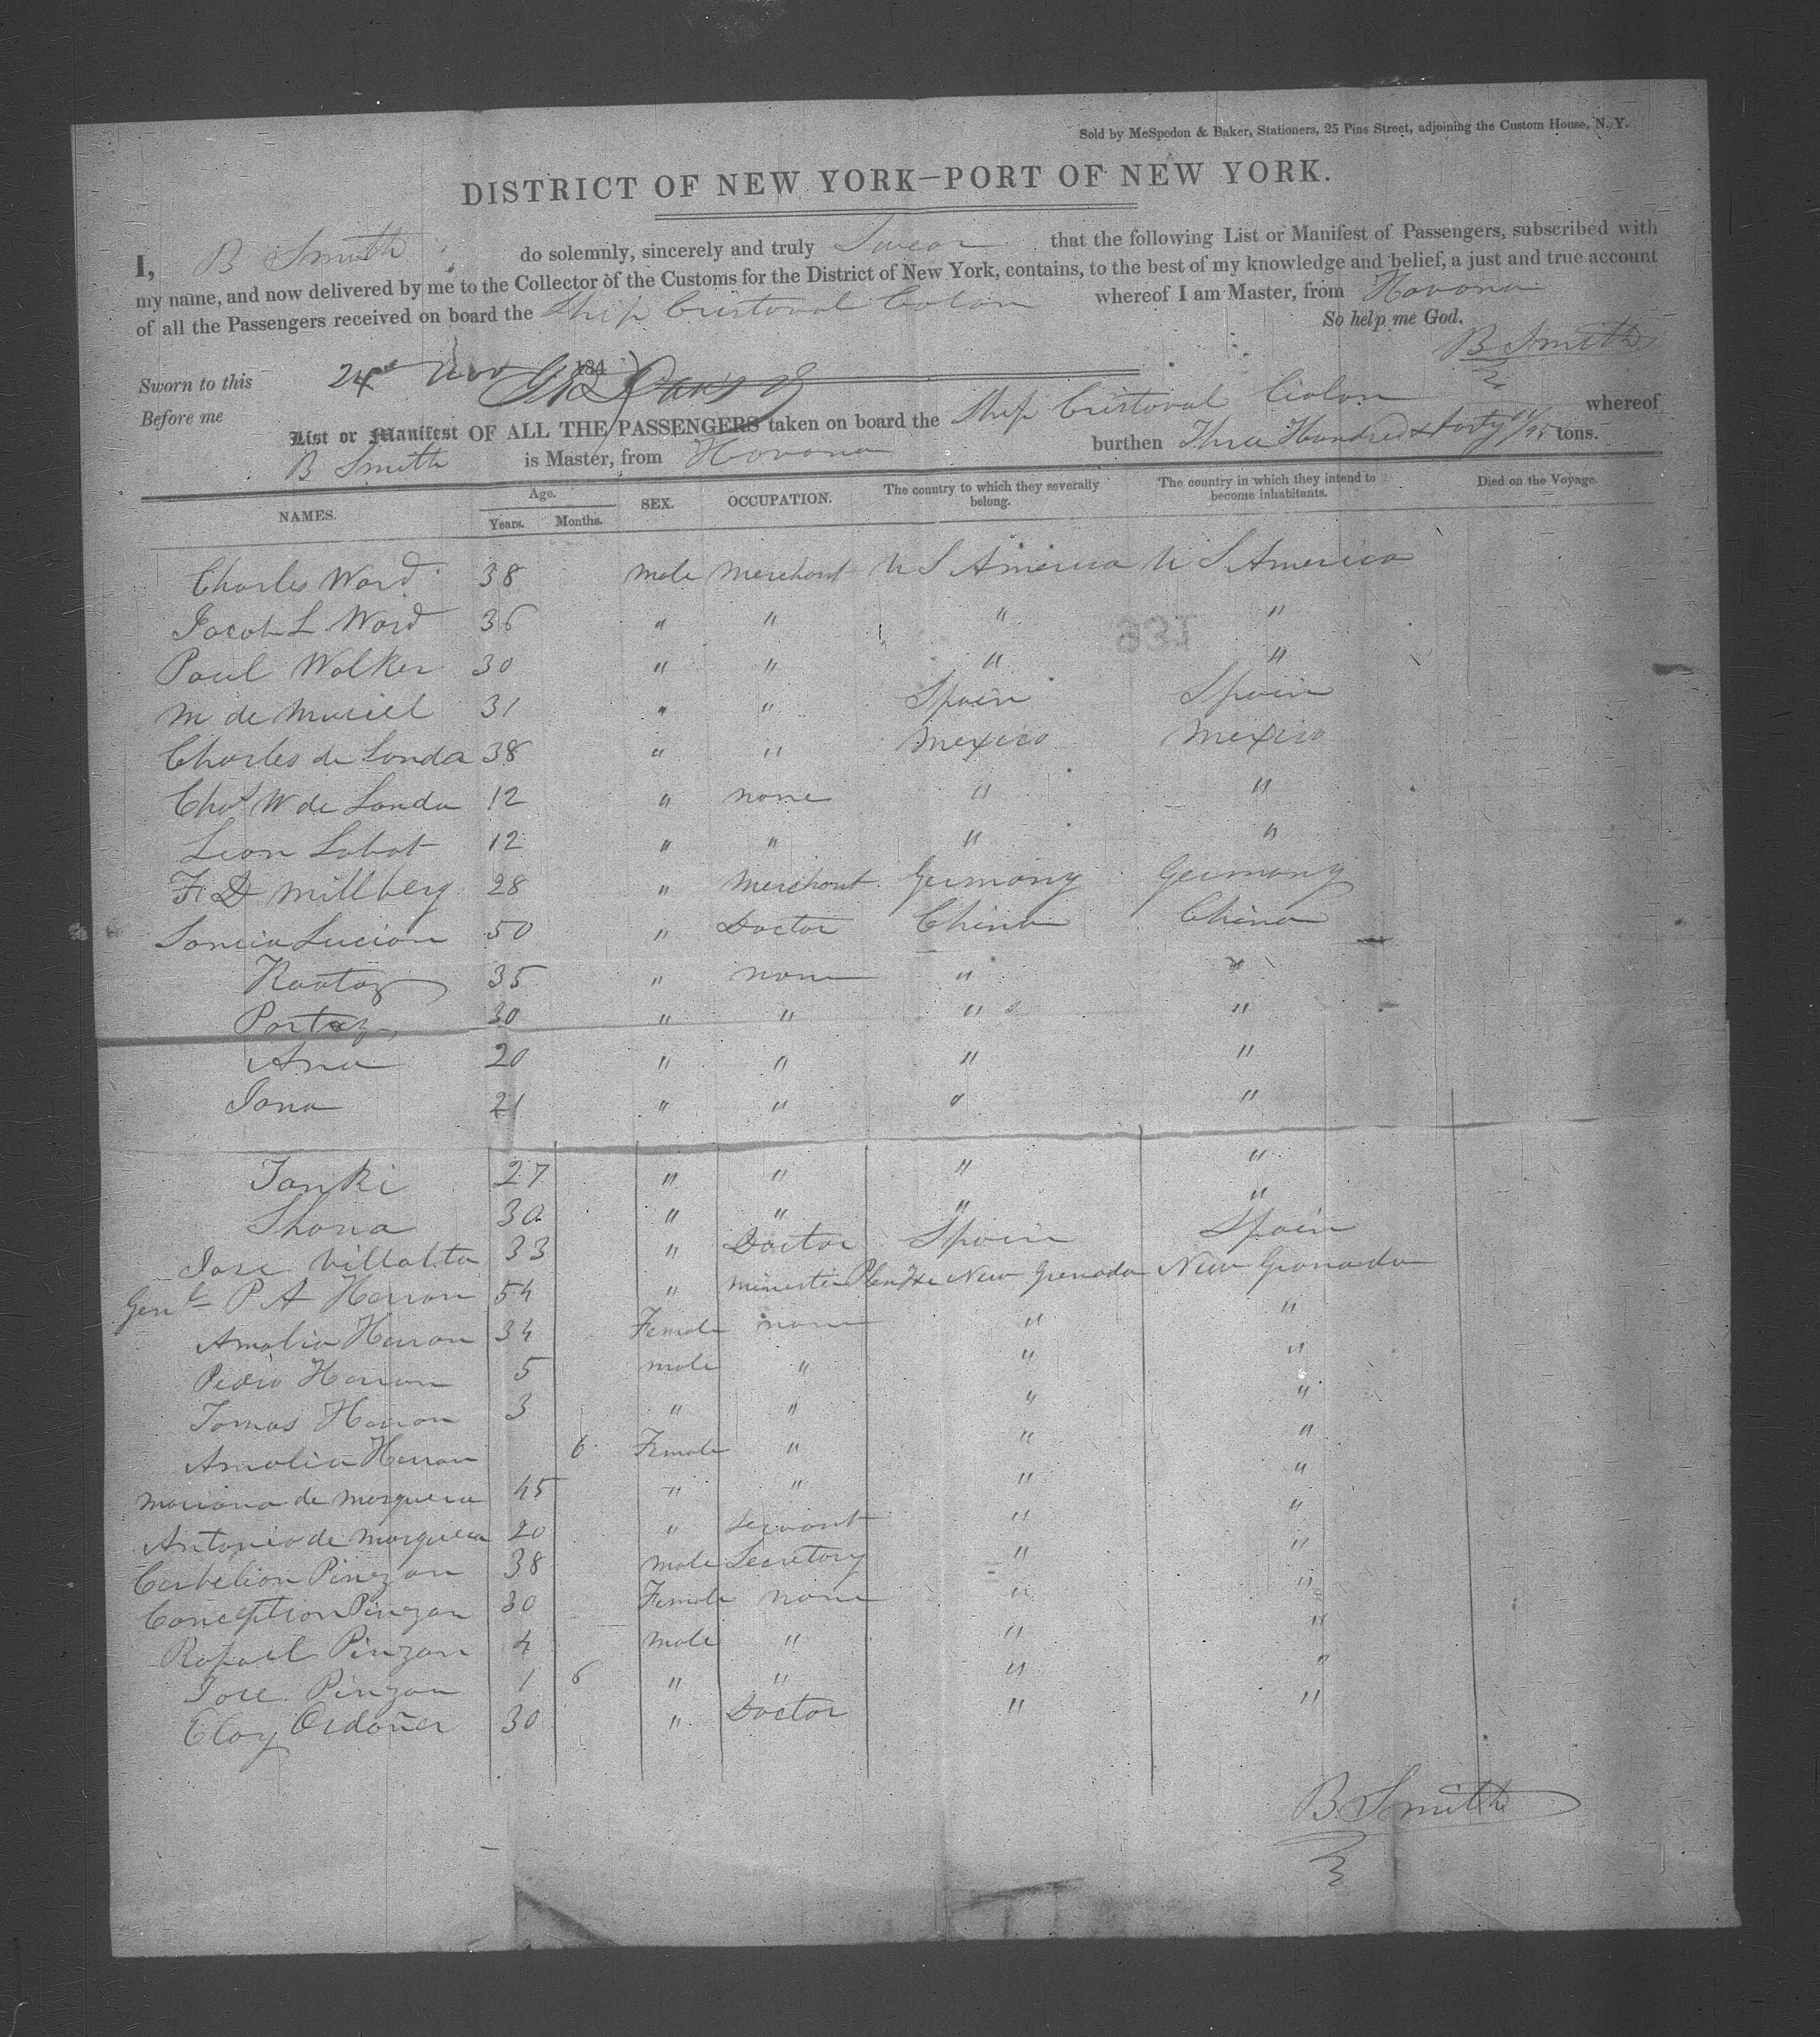 Sold by McSpedon & Baker, Stationers, 25 Pine Street, adjoining the Custom House, N. Y.
DISTRICT OF NEW YORK—PORT OF NEW YORK.
I, B Smith do solemnly, sincerely and truly Swear that the following List or Manifest of Passengers, subscribed with
my name, and now delivered by me to the Collector of the Customs for the District of New York, contains, to the best of my knowledge and belief, a just and true account
of all the Passengers received on board the Ship Cristoval Colon whereof I am Master, from Havana
So help me God.
Sworn to this 24 Nov 184 B Smith
Before me
List or Manifest OF ALL THE PASSENGERS taken on board the Ship Cristoval Colon whereof
B Smith is Master, from Havana burthen Three Hundred & forty /95 tons.
NAMES. Age. Years. Months. SEX. OCCUPATION. The country to which they severally belong. The country in which they intend to become inhabitants. Died on the Voyage.
Charles Ward 38 male Merchant U S America U S America
Jacob L Ward 36 " " " "
Paul Walker 30 " " " "
M de Muriel 31 " " Spain Spain
Charles de Landa 38 " " Mexico Mexico
Chas W de Landa 12 " none " "
Leon Labat 12 " " " "
F. D Millberg 28 " Merchant Germany Germany
Lucian 50 " Doctor China China
35 " none " "
30 " " " "
Ana 20 " " " "
Jana 21 " " " "
Tanki 27 " " " "
Shana 30 " " " "
Jose Villalta 33 " Doctor Spain Spain
Genl P A Herran 54 " Minister New Grenada New Granada
Amalia Herran 34 Female none " "
Pedro Herran 5 male " " "
Tomas Herran 3 " " " "
Amalia Herran 6 Female " " "
Mariana de Mosquera 45 " " " "
Antonia de Mosquera 20 " Servant " "
Pinzon 38 male Secretary " "
Conception Pinzon 30 Female none " "
Rafael Pinzon 4 male " " "
Jose Pinzon 1 6 " " " "
Eloy Ordoñez 30 " Doctor " "
B Smith